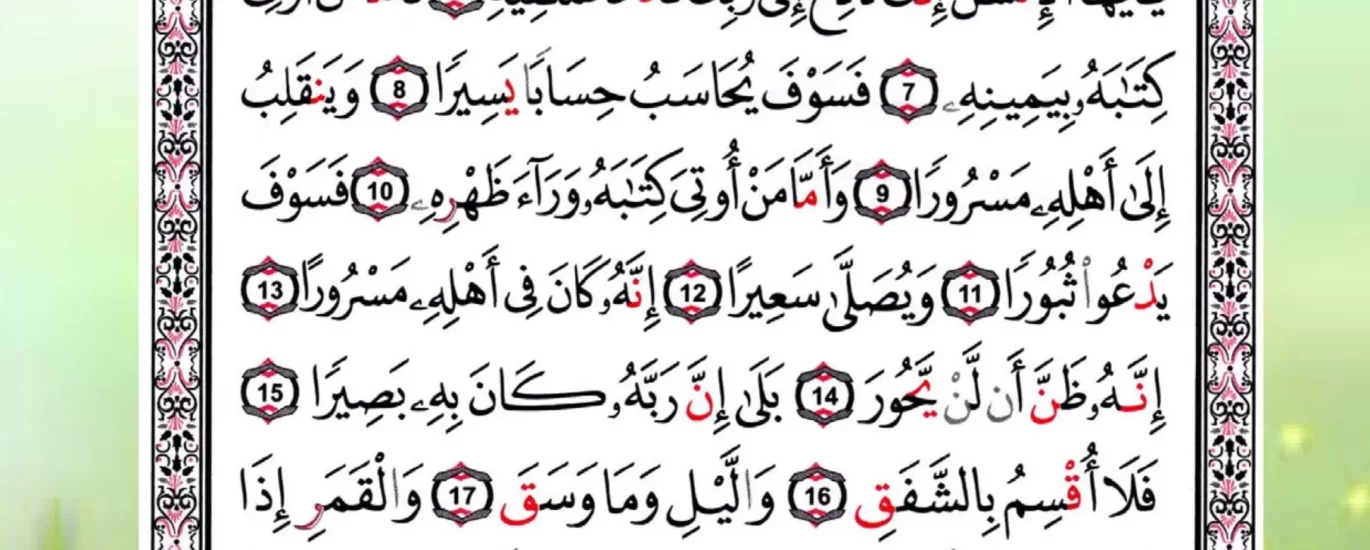 كِتَٰبَهُۥ بِيَمِينِهِۦ 7 فَسَوْفَ يُحَاسَبُ حِسَابًا يَسِيرًا 8 وَيَنقَلِبُ
إِلَىٰٓ أَهْلِهِۦ مَسْرُورًا 9 وَأَمَّا مَنْ أُوتِىَ كِتَٰبَهُۥ وَرَآءَ ظَهْرِهِۦ 10 فَسَوْفَ
يَدْعُوا۟ ثُبُورًا 11 وَيُصَلَّىٰ سَعِيرًا 12 إِنَّهُۥ كَانَ فِىٓ أَهْلِهِۦ مَسْرُورًا 13
إِنَّهُۥ ظَنَّ أَن لَّنْ يَّحُورَ 14 بَلَىٰٓ إِنَّ رَبَّهُۥ كَانَ بِهِۦ بَصِيرًا 15
فَلَآ أُقْسِمُ بِالشَّفَقِ 16 وَالَّيْلِ وَمَا وَسَقَ 17 وَالْقَمَرِ إِذَا